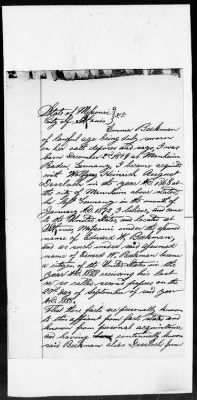 State of Missouri }
City of St Louis } SS.
Emma Beekman
of lawful age being duly sworn
on her oath deposes and says I was
born December 2nd 1849 at Mannheim
Baden, Germany I became acquainted
with Wolfgang Heinrich August
Dearloch in the year A.D. 1868 at
the city of Mannheim above stated,
he left Germany in the month of
January A.D. 1872 I believe, and came
to the United States, and located in
St Louis Missouri under the assumed
name of Edward H. Beekman,
and as such under said assumed
name of Edward H. Beekman became
a citizen of the United States in the
year A.D. 1888 receiving his last
or so called second papers on the
20th day of September of said year
A.D. 1888.
That these facts are personally known
to this affiant from facts stated and
known from personal acquaintance
and having continually known
said Beekman alias Dearloch from